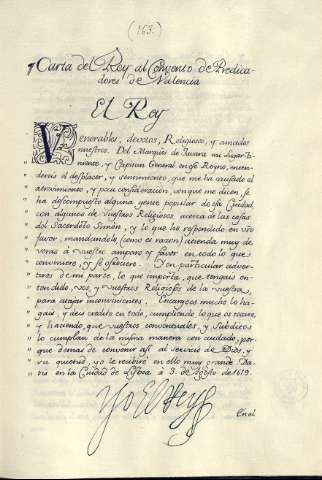 (163.)
Carta del Rey al Convento de Predica-
dores de Valencia
El Rey
Venerables, devotos, Religiosos, y amados
nuestros. Del Marques de Tavara mi Lugar Te-
niente, y Capitan General en esse Reyno, enten-
dereis el desplacer, y sentimiento que me ha causado el
atrevimiento, y poca consideracion, con que me dicen, se
ha descompuesto alguna gente popular de essa Ciudad
con algunos de vuestros Religiosos acerca de las cosas
del Sacerdote Simon, y lo que he respondido en vro
favor, mandandole, (como es razon) atienda muy de
veras a vuestro amparo y favor en todo lo que
conviniere, y se ofreciere. Y en particular adver-
tiros de mi parte, lo que importa, que tengais en-
tendido, vos, y vuestros Religiosos de la vuestra,
para atajar inconvenientes. Encargoos mucho lo ha-
gais, y deis credito en todo, cumpliendo lo que os tocare,
y haciendo, que vuestros conventuales, y Subditos
lo cumplan de la misma manera con cuidado, por-
que demas de convenir assi al servicio de Dios, y
su quietud, yo le recibiré en ello muy grande. Da-
tis en la Ciudad de Lisboa à 3. de Agosto de 1619.
Yo El Rey
En el